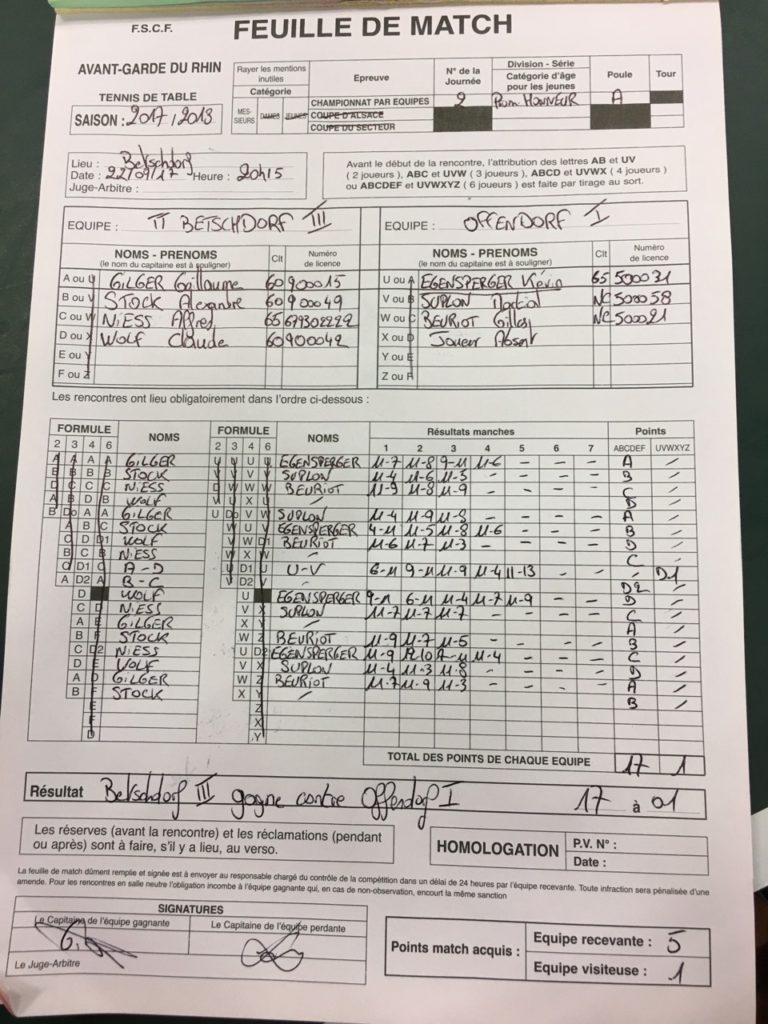 F.S.C.F.
FEUILLE DE MATCH
AVANT-GARDE DU RHIN
TENNIS DE TABLE
SAISON : 2017/2018
Rayer les mentions inutiles
Catégorie
MES-SIEURS DAMES JEUNES
Epreuve
CHAMPIONNAT PAR EQUIPES
COUPE D'ALSACE
COUPE DU SECTEUR
N° de la Journée
2
Division - Série
Catégorie d'âge pour les jeunes
Prom HONNEUR
Poule
A
Tour
Lieu : Betschdorf
Date : 22/09/17 Heure : 20h15
Juge-Arbitre :
Avant le début de la rencontre, l'attribution des lettres AB et UV
( 2 joueurs ), ABC et UVW ( 3 joueurs ), ABCD et UVWX ( 4 joueurs )
ou ABCDEF et UVWXYZ ( 6 joueurs ) est faite par tirage au sort.
EQUIPE : TT BETSCHDORF III
EQUIPE : OFFENDORF I
NOMS - PRENOMS Clt Numéro de licence
(le nom du capitaine est à souligner)
A ou U GILGER Guillaume 60 900015
B ou V STOCK Alexandre 60 900049
C ou W NiESS Alfred 65 679302222
D ou X WOLF Claude 60 900042
E ou Y
F ou Z
NOMS - PRENOMS Clt Numéro de licence
(le nom du capitaine est à souligner)
U ou A EGENSPERGER Kévin 65 500031
V ou B SUPLON Martial NC 500058
W ou C BEURIOT Gilles NC 500021
X ou D Joueur Absent
Y ou E
Z ou F
Les rencontres ont lieu obligatoirement dans l'ordre ci-dessous :
FORMULE NOMS FORMULE NOMS Résultats manches Points
2 3 4 6 2 3 4 6 1 2 3 4 5 6 7 ABCDEF UVWXYZ
A A A A GILGER U U U U EGENSPERGER 11-7 11-8 9-11 11-6 - - - A /
B B B B STOCK V V V V SUPLON 11-4 11-6 11-3 - - - - B /
D C C C NiESS D W W W BEURIOT 11-9 11-8 11-9 - - - - C /
A B D B WOLF V U X U / D /
B Do A A GILGER U Do V V SUPLON 11-4 11-9 11-8 - - - - A /
A B C STOCK V U V EGENSPERGER 4-11 11-5 11-8 11-6 - - - B /
C D D1 WOLF W W D1 BEURIOT 11-6 11-7 11-3 - - - - D /
B C B NiESS V X W / C /
C D1 C A-D U D1 U U-V 6-11 9-11 11-9 11-4 11-13 - - / D1
A D2 A B-C V D2 V D2 /
D WOLF U EGENSPERGER 9-11 6-11 11-4 11-7 11-9 - - D /
C D NiESS V X SUPLON 11-7 11-7 11-7 - - - - C /
A E GILGER X Y / A /
B F STOCK W Z BEURIOT 11-9 11-7 11-5 - - - - B /
C D2 NiESS U D2 EGENSPERGER 11-9 12-10 7-11 11-4 - - - C /
D E WOLF V X SUPLON 11-4 11-3 11-8 - - - - D /
A D GILGER W Z BEURIOT 11-7 11-9 11-3 - - - - A /
B F STOCK X Y / B /
E Z
F X
D Y
TOTAL DES POINTS DE CHAQUE EQUIPE 17 1
Résultat Betschdorf III gagne contre Offendorf I 17 à 01
Les réserves (avant la rencontre) et les réclamations (pendant
ou après) sont à faire, s'il y a lieu, au verso.
HOMOLOGATION
P.V. N° :
Date :
La feuille de match dûment remplie et signée est à envoyer au responsable chargé du contrôle de la compétition dans un délai de 24 heures par l'équipe recevante. Toute infraction sera pénalisée d'une
amende. Pour les rencontres en salle neutre l'obligation incombe à l'équipe gagnante qui, en cas de non-observation, encourt la même sanction
SIGNATURES
Le Capitaine de l'équipe gagnante
Le Capitaine de l'équipe perdante
Le Juge-Arbitre
Points match acquis :
Equipe recevante : 5
Equipe visiteuse : 1